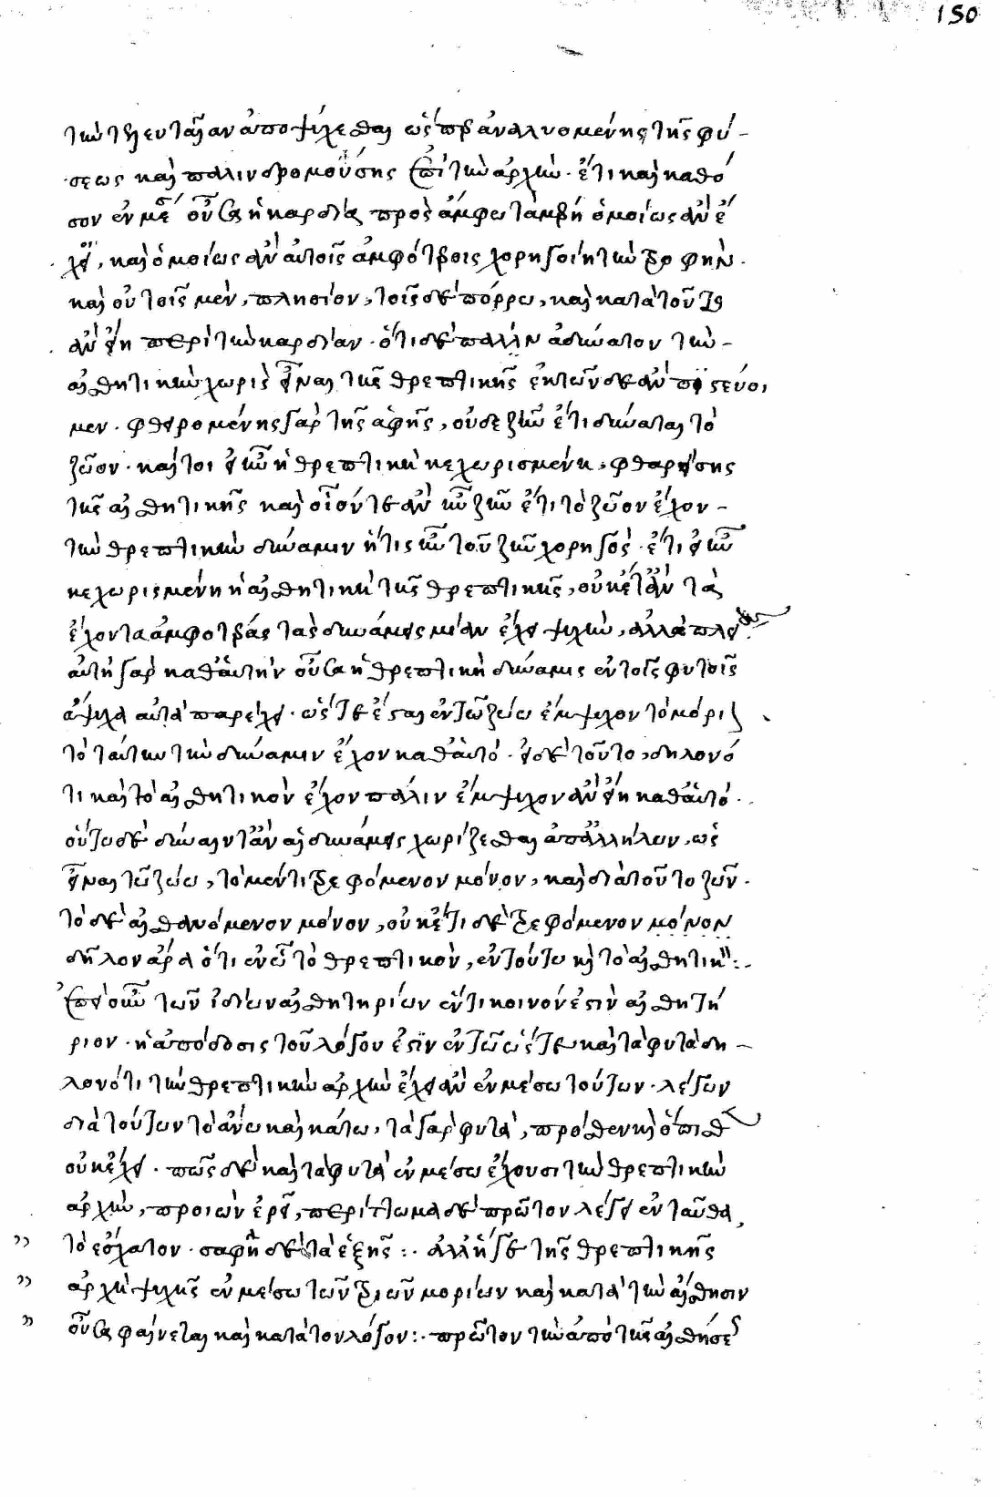 150
τὴν τελευταίαν ἀποψύχεσθαι ὥσπερ ἀναλυομένης τῆς φύ-
σεως καὶ παλινδρομούσης ἐπὶ τὴν ἀρχήν. ἔτι καὶ καθό
σον ἐν μέσῳ οὖσα ἡ καρδία πρὸς ἄμφω τὰ μέρη ὁμοίως ἂν ἔ
χοι, καὶ ὁμοίως ἂν αὐτοῖς ἀμφοτέροις χορηγοίη τὴν τροφήν.
καὶ οὐ τοῖς μὲν, πλησίον, τοῖς δὲ πόρρω, καὶ κατὰ τοῦτο
ἂν εἴη περὶ τὴν καρδίαν. ὅτι δὲ πάλιν ἀδύνατον τὴν
αἰσθητικὴν χωρὶς εἶναι τῆς θρεπτικῆς ἐκ τῶνδε ἂν πιστεύοι
μεν. φθειρομένης γὰρ τῆς ἁφῆς, οὐδὲ ζῆν ἔτι δύναται τὸ
ζῶον. καίτοι εἰ ἦν ἡ θρεπτικὴ κεχωρισμένη, φθαρείσης
τῆς αἰσθητικῆς καὶ οἷόν τε ἂν ἦν ζῆν ἔτι τὸ ζῶον ἔχον
τὴν θρεπτικὴν δύναμιν ἥτις ἦν τοῦ ζῆν χορηγός. ἔτι εἰ ἦν
κεχωρισμένη ἡ αἰσθητικὴ τῆς θρεπτικῆς, οὐκέτ' ἂν τὰ
ἔχοντα ἀμφοτέρας τὰς δυνάμεις μίαν ἔχει ψυχὴν, ἀλλὰ πλεί
αὐτὴ γὰρ καθ' αὑτὴν οὖσα ἡ θρεπτικὴ δύναμις ἐν τοῖς φυτοῖς
ἔμψυχα αὐτὰ παρεῖχε. ὥστε ἔσται ἐν τῷ ζώω ἔμψυχον τὸ μόριον
τὸ ταύτην τὴν δύναμιν ἔχον καθ' αὑτό. εἰ δὲ τοῦτο, δηλονό
τι καὶ τὸ αἰσθητικὸν ἔχον πάλιν ἔμψυχον ἂν εἴη καθ' αὑτό.
οὕτω δὲ δύναιντ' ἂν αἱ δυνάμεις χωρίζεσθαι ἀπ' ἀλλήλων, ὡς
εἶναι τῷ ζώω, τὸ μέν τι τρεφόμενον μόνον, καὶ διὰ τοῦτο ζῶν.
τὸ δὲ αἰσθανόμενον μόνον, οὐκέτι δὲ τρεφόμενον μόνον
δῆλον ἄρα ὅτι ἐν ᾧ τὸ θρεπτικὸν, ἐν τούτω καὶ τὸ αἰσθητικόν:.
ἐπεὶ οὖν τῶν ἰδίων αἰσθητηρίων ἕν τι κοινόν ἐστιν αἰσθητή
ριον. ἡ ἀπόδοσις τοῦ λόγου ἐστὶν ἐν τῷ ὥστε καὶ τὰ φυτὰ δη-
λονότι τὴν θρεπτικὴν ἀρχὴν ἔχει ἂν ἐν μέσω τούτων. λέγων
διὰ τούτων τὸ ἄνω καὶ κάτω, τὰ γὰρ φυτὰ, πρόσθεν καὶ ὄπισθεν
οὐκ ἔχει. πῶς δὲ καὶ τὰ φυτὰ ἐν μέσω ἔχουσι τὴν θρεπτικὴν
ἀρχὴν, προιὼν ἐρεῖ, περίττωμα δὲ πρῶτον λέγει ἐνταῦθα,
τὸ ἔσχατον. σαφῆ δὲ τὰ ἑξῆς:. ἀλλ' ἥ γε τῆς θρεπτικῆς
ἀρχὴ ψυχῆς ἐν μέσω τῶν τριῶν μορίων καὶ κατὰ τὴν αἴσθησιν
οὖσα φαίνεται καὶ κατὰ τὸν λόγον:. πρῶτον τὴν ἀπὸ τῆς αἰσθήσεως